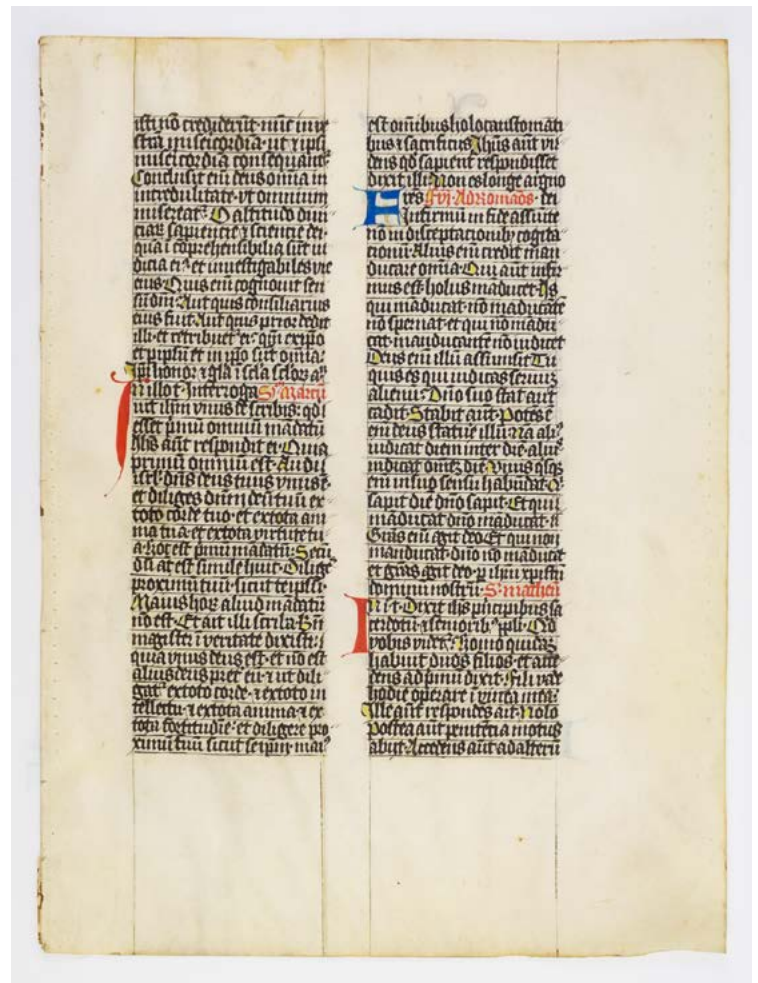 isti nō crediderūt nūc in vr̄
stra misericordia ut ⁊ ipsi
misericordiā consequant̄
Conclusit eni deus omnia in
incredulitate vt omnium
misereat᷑ O altitudo diui
ciaꝝ sapiencie ⁊ sciencie dei
quā i cōprehensibilia sūt iu
dicia eiꝰ et inuestigabiles vie
eius Quis eni cognouit sen
sū dn̄i Aut quis consiliarius
eius fuit Aut quis prior dedit
illi et retribuet᷑ ei qm̄ ex ip̄o
et p ip̄su et in ip̄o sūt omnia
Ip̄i honor ⁊ gl̄a i secl̄a sclorꝝ am̄
In illo t Interroga S Marcū
uit ih̄m vnus de scribis qd̓
esset p̓mū omniū mādatū
Ih̄s aūt respondit ei Quia
primū omniū est Audi
isrl̄ dn̄s deus tuus vnus ē
et diliges dn̄m deū tuū ex
toto corde tuo et ex tota ani
ma tua et ex tota virtute tu
a hoc est p̓mū mādatū Secū
dū aūt est simile huic Diliges
proximū tuū sicut te ipsū
Maius hoꝝ aliud mādatū
nō est Et ait illi scriba Bn̄
magister i veritate dixisti
quia vnus deus est et nō est
alius deus p̄ter eū ⁊ ut dili
gat᷑ ex toto corde ⁊ ex toto in
tellectu ⁊ ex tota anima ⁊ ex
tota fortitudīe et diligere pro
ximū tuū sicut se ipm̄ maiꝰ
est omībus holocaustomati
bus ⁊ sacrificiis Ih̄us aūt vi
dens qd̓ sapient᷑ respondisset
dixit illi Non es longe a regno
Fres xvj Ad Romaōs dei
Infirmū in fide assūite
nō in disceptacionibꝫ cogita
cionū Alius eni credit man
ducare omīa Qui aūt infir
mus est holus māducet Is
qui māducat nō māducātē
nō spernat et qui nō mādu
cat manducantē nō iudicet
Deus eni illū assumsit Tu
quis es qui iudicas seruū
alienū Dn̄o suo stat aut
cadit Stabit aūt Potēs ē
eni deus statue illū Na aliꝰ
iudicat diem inter diē aliꝰ
iudicat om̄ē diē Vnus qsqꝫ
eni in suo sensu habūdat Qͥ
sapit diē dn̄o sapit Et qui
māducat dn̄o māducat
Grās eni agit deo Et qui non
manducat dn̄o nō māducat
et grās agit deo p ih̄m xp̄istū
dominū nostrū S matheū
In i t Dixit ih̄s p̓ncipibus sa
cerdotū ⁊ seniorib ppl̄i Qd̓
vobis videt᷑ Homo quidā
habuit duos filios et acce
dens ad p̓mū dixit Fili vade
hodie operare i vinea mea
Ille aūt respondēs ait Nolo
Postea aūt penitēcia motus
abijt Accedens aūt ad alterū